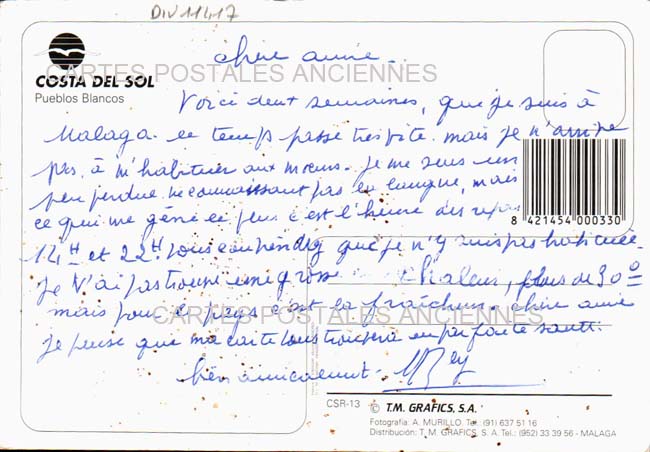 DIV11417
COSTA DEL SOL
Pueblos Blancos
CARTES POSTALES ANCIENNES
chère amie -
Voici deux semaines, que je suis à
Malaga. le temps passe très vite. mais je n'arrive
pas, à m'habituer aux moeurs. Je me sens un
peu perdue ne connaissant pas la langue, mais
ce qui me gêne le plus c'est l'heure des repas
14H et 22H. vous comprendrez que je n'y suis pas habituée
Je n'ai pas trouvé une grosse chaleur, plus de 30°
mais pour le pays c'est la fraîcheur. chère amie
CARTES POSTALES ANCIENNES
je pense que ma carte vous trouvera en parfaite santé.
bien amicalement -
8 421454 000330
CSR-13 © T.M. GRAFICS, S.A.
Fotografía: A. MURILLO. Tel: (91) 637 51 16
Distribución: T. M. GRAFICS, S. A. Tel.: (952) 33 39 56 - MALAGA